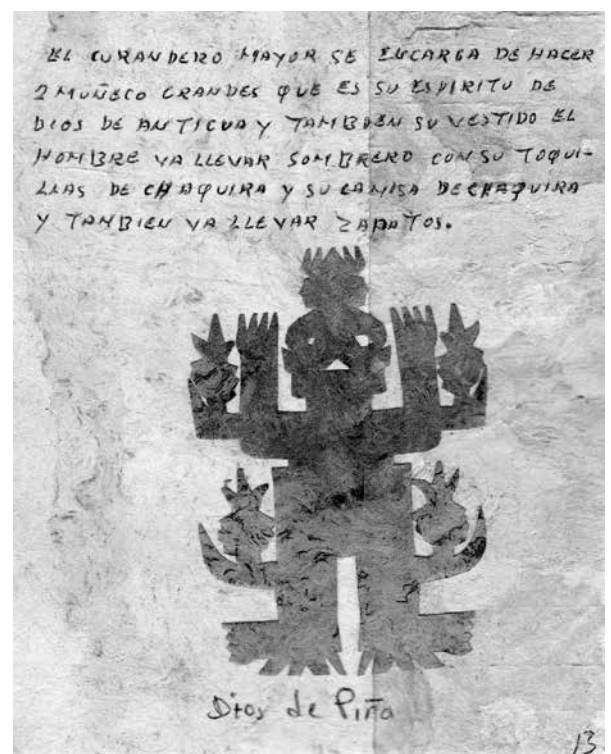 EL CURANDERO MAYOR SE ENCARGA DE HACER
2 MUÑECO GRANDES QUE ES SU ESPIRITU DE
DIOS DE ANTIGUA Y TAMBIEN SU VESTIDO EL
HOMBRE VA LLEVAR SOMBRERO CON SU TOQUI-
LLAS DE CHAQUIRA Y SU CAMISA DE CHAQUIRA
Y TAMBIEN VA LLEVAR ZAPATOS.
Dios de Piña
13